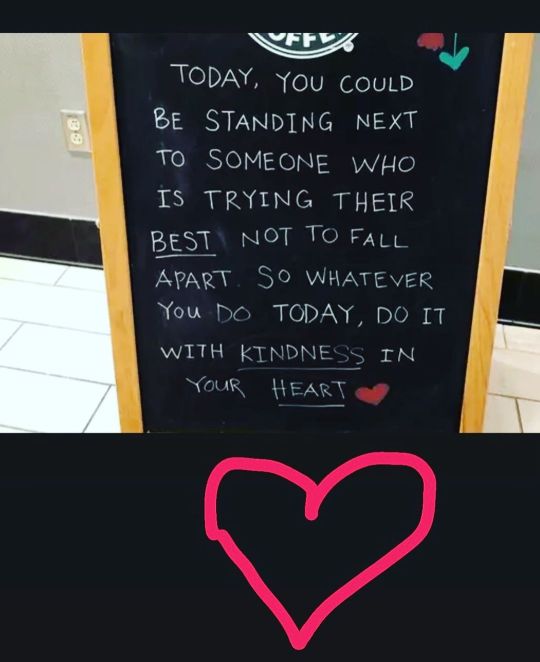 OFFE
TODAY, YOU COULD
BE STANDING NEXT
TO SOMEONE WHO
IS TRYING THEIR
BEST NOT TO FALL
APART. SO WHATEVER
YOU DO TODAY, DO IT
WITH KINDNESS IN
YOUR HEART